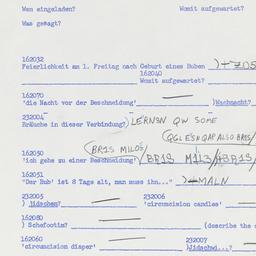 Wen eingeladen? Womit aufgewartet?
Was gesagt?
162032
Feierlichkeit am 1. Freitag nach Geburt eines Buben
162040
Womit aufgewartet?
162070
'die Nacht vor der Beschneidung' )Wachnacht?
232004
Bräuche in dieser Verbindung? LERNEN QW SOME
BRIS MILOS
162050
'ich gehe zu einer Beschneidung' BRIS
162051
"Der Bub' ist 8 Tage alt, man muss ihn..." MALN
232005 232006
) jidschen? 'circumcision candles'
162080
) Schefootim? (describe the
162060 232007
'circumcision diaper' )Jidschwi...?